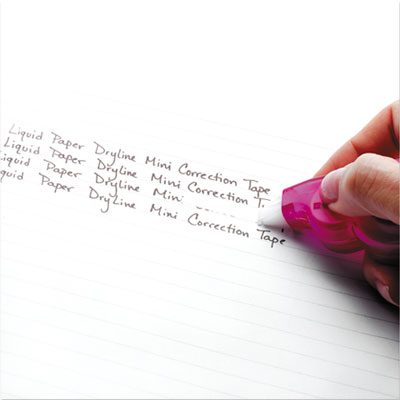 Liquid Paper Dryline Mini Correction Tape
Liquid Paper Dryline Mini Correction T
Liquid Paper Dryline Mini
Liquid Paper Dryline Mini Correction Tape